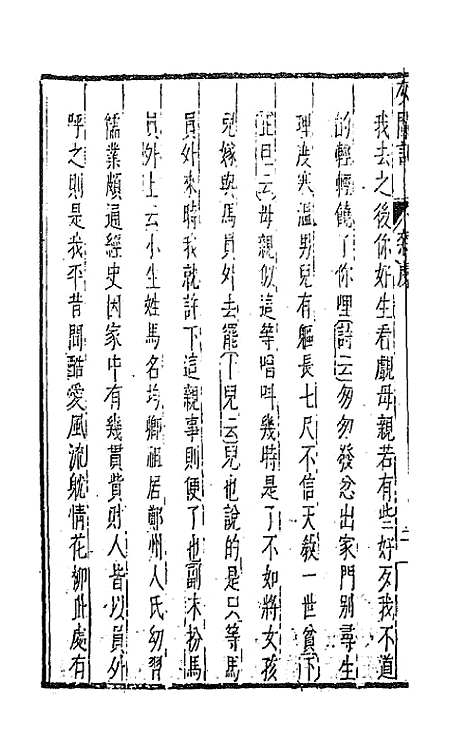 灰闌記
楔子
二
我去之後你好生看覷母親若有些好歹我不道
的輕輕饒了你哩詩云匆匆發忿出家門別尋生
理度寒溫男兒有軀長七尺不信天教一世貧下
正旦云母親似這等唱叫幾時是了不如將女孩
兒嫁與馬員外去罷卜兒云兒也說的是只等馬
員外來時我就許下這親事則便了也副末扮馬
員外上云小生姓馬名均卿祖居鄭州人氏幼習
儒業頗通經史因家中有幾貫貲財人皆以員外
呼之則是我平昔間酷愛風流躭情花柳此處有